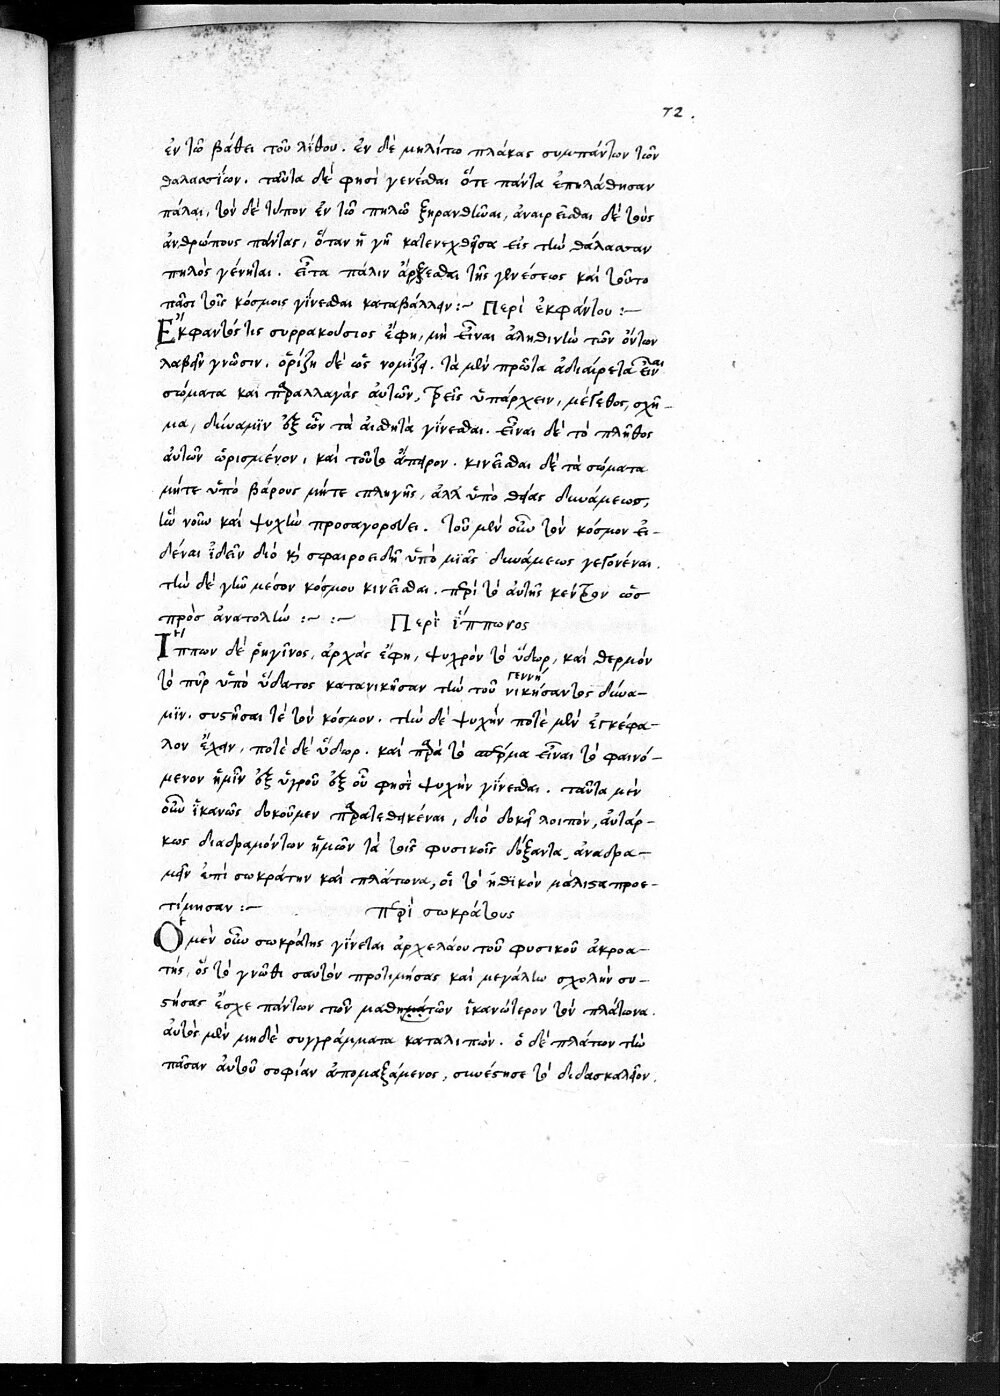 72.
ἐν τῷ βάθει τοῦ λίθου. ἐν δὲ μηλίτω πλάκας συμπάντων τῶν
θαλασσίων. ταῦτα δέ φησι γενέσθαι ὅτε πάντα ἐπηλώθησαν
πάλαι, τὸν δὲ τύπον ἐν τῷ πηλῷ ξηρανθῆναι, ἀναιρεῖσθαι δὲ τοὺς
ἀνθρώπους πάντας, ὅταν ἡ γῆ κατενεχθεῖσα εἰς τὴν θάλασσαν
πηλὸς γένηται. εἶτα πάλιν ἄρξεσθαι τῆς γενέσεως καὶ τοῦτο
πᾶσι τοῖς κόσμοις γίνεσθαι καταβάλλειν :~ Περὶ ἐκφάντου :~
Ἔκφαντός τις συρρακούσιος ἔφη, μὴ εἶναι ἀληθινὴν τῶν ὄντων
λαβεῖν γνῶσιν. ὁρίζη δὲ ὡς νομίζει. τὰ μὲν πρῶτα ἀδιαίρετα εἶναι
σώματα καὶ παραλλαγὰς αὐτῶν, τρεῖς ὑπάρχειν, μέγεθος, σχῆ-
μα, δύναμιν ἐξ ὧν τὰ αἰσθητὰ γίνεσθαι. εἶναι δὲ τὸ πλῆθος
αὐτῶν ὡρισμένον, καὶ τοῦτο ἄπειρον. κινεῖσθαι δὲ τὰ σώματα
μήτε ὑπὸ βάρους μήτε πληγῆς, ἀλλ' ὑπὸ θείας δυνάμεως,
ἣν νοῦν καὶ ψυχὴν προσαγορεύει. τοῦ μὲν οὖν τὸν κόσμον εἰ-
δέναι ἰδεῖν διὸ καὶ σφαιροειδῆ ὑπὸ μιᾶς δυνάμεως γεγονέναι.
τὴν δὲ γῆν μέσον κόσμου κινεῖσθαι. περὶ τὸ αὐτῆς κέντρον ὡς
πρὸς ἀνατολὴν :~ :~ Περὶ ἵππωνος
Ἵππων δὲ ῥηγῖνος, ἀρχὰς ἔφη, ψυχρὸν τὸ ὕδωρ, καὶ θερμὸν
τὸ πῦρ ὑπὸ ὕδατος κατανικῆσαι τὴν τοῦ γεννή νικήσαντος δύνα-
μιν. συστῆσαί τε τὸν κόσμον. τὴν δὲ ψυχὴν ποτὲ μὲν ἐγκέφα-
λον ἔχειν, ποτὲ δὲ ὕδωρ. καὶ παρὰ τὸ σπέρμα εἶναι τὸ φαινό-
μενον ἡμῖν ἐξ ὑγροῦ ἐξ οὗ φησὶ ψυχὴν γίνεσθαι. ταῦτα μὲν
οὖν ἱκανῶς δοκοῦμεν παρατεθεικέναι, διὸ δοκεῖ λοιπὸν, αὐτάρ-
κως διαδραμόντων ἡμῶν τὰ τοῖς φυσικοῖς δόξαντα, ἀναδρα-
μεῖν ἐπὶ σωκράτην καὶ πλάτωνα, οἳ τὸ ἠθικὸν μάλιστα προε-
τίμησαν :~ περὶ σωκράτους
Ὁ μὲν οὖν σωκράτης γίνεται ἀρχελάου τοῦ φυσικοῦ ἀκροα-
τής, ὃς τὸ γνῶθι σαυτὸν προτιμήσας καὶ μεγάλην σχολὴν συ-
στήσας ἔσχε πάντων τῶν μαθημάτῶν ἱκανώτερον τὸν πλάτωνα.
αὐτὸς μὲν μηδὲ συγγράμματα καταλιπών. ὁ δὲ πλάτων τὴν
πᾶσαν αὐτοῦ σοφίαν ἀπομαξάμενος, συνέστησε τὸ διδασκαλεῖον.